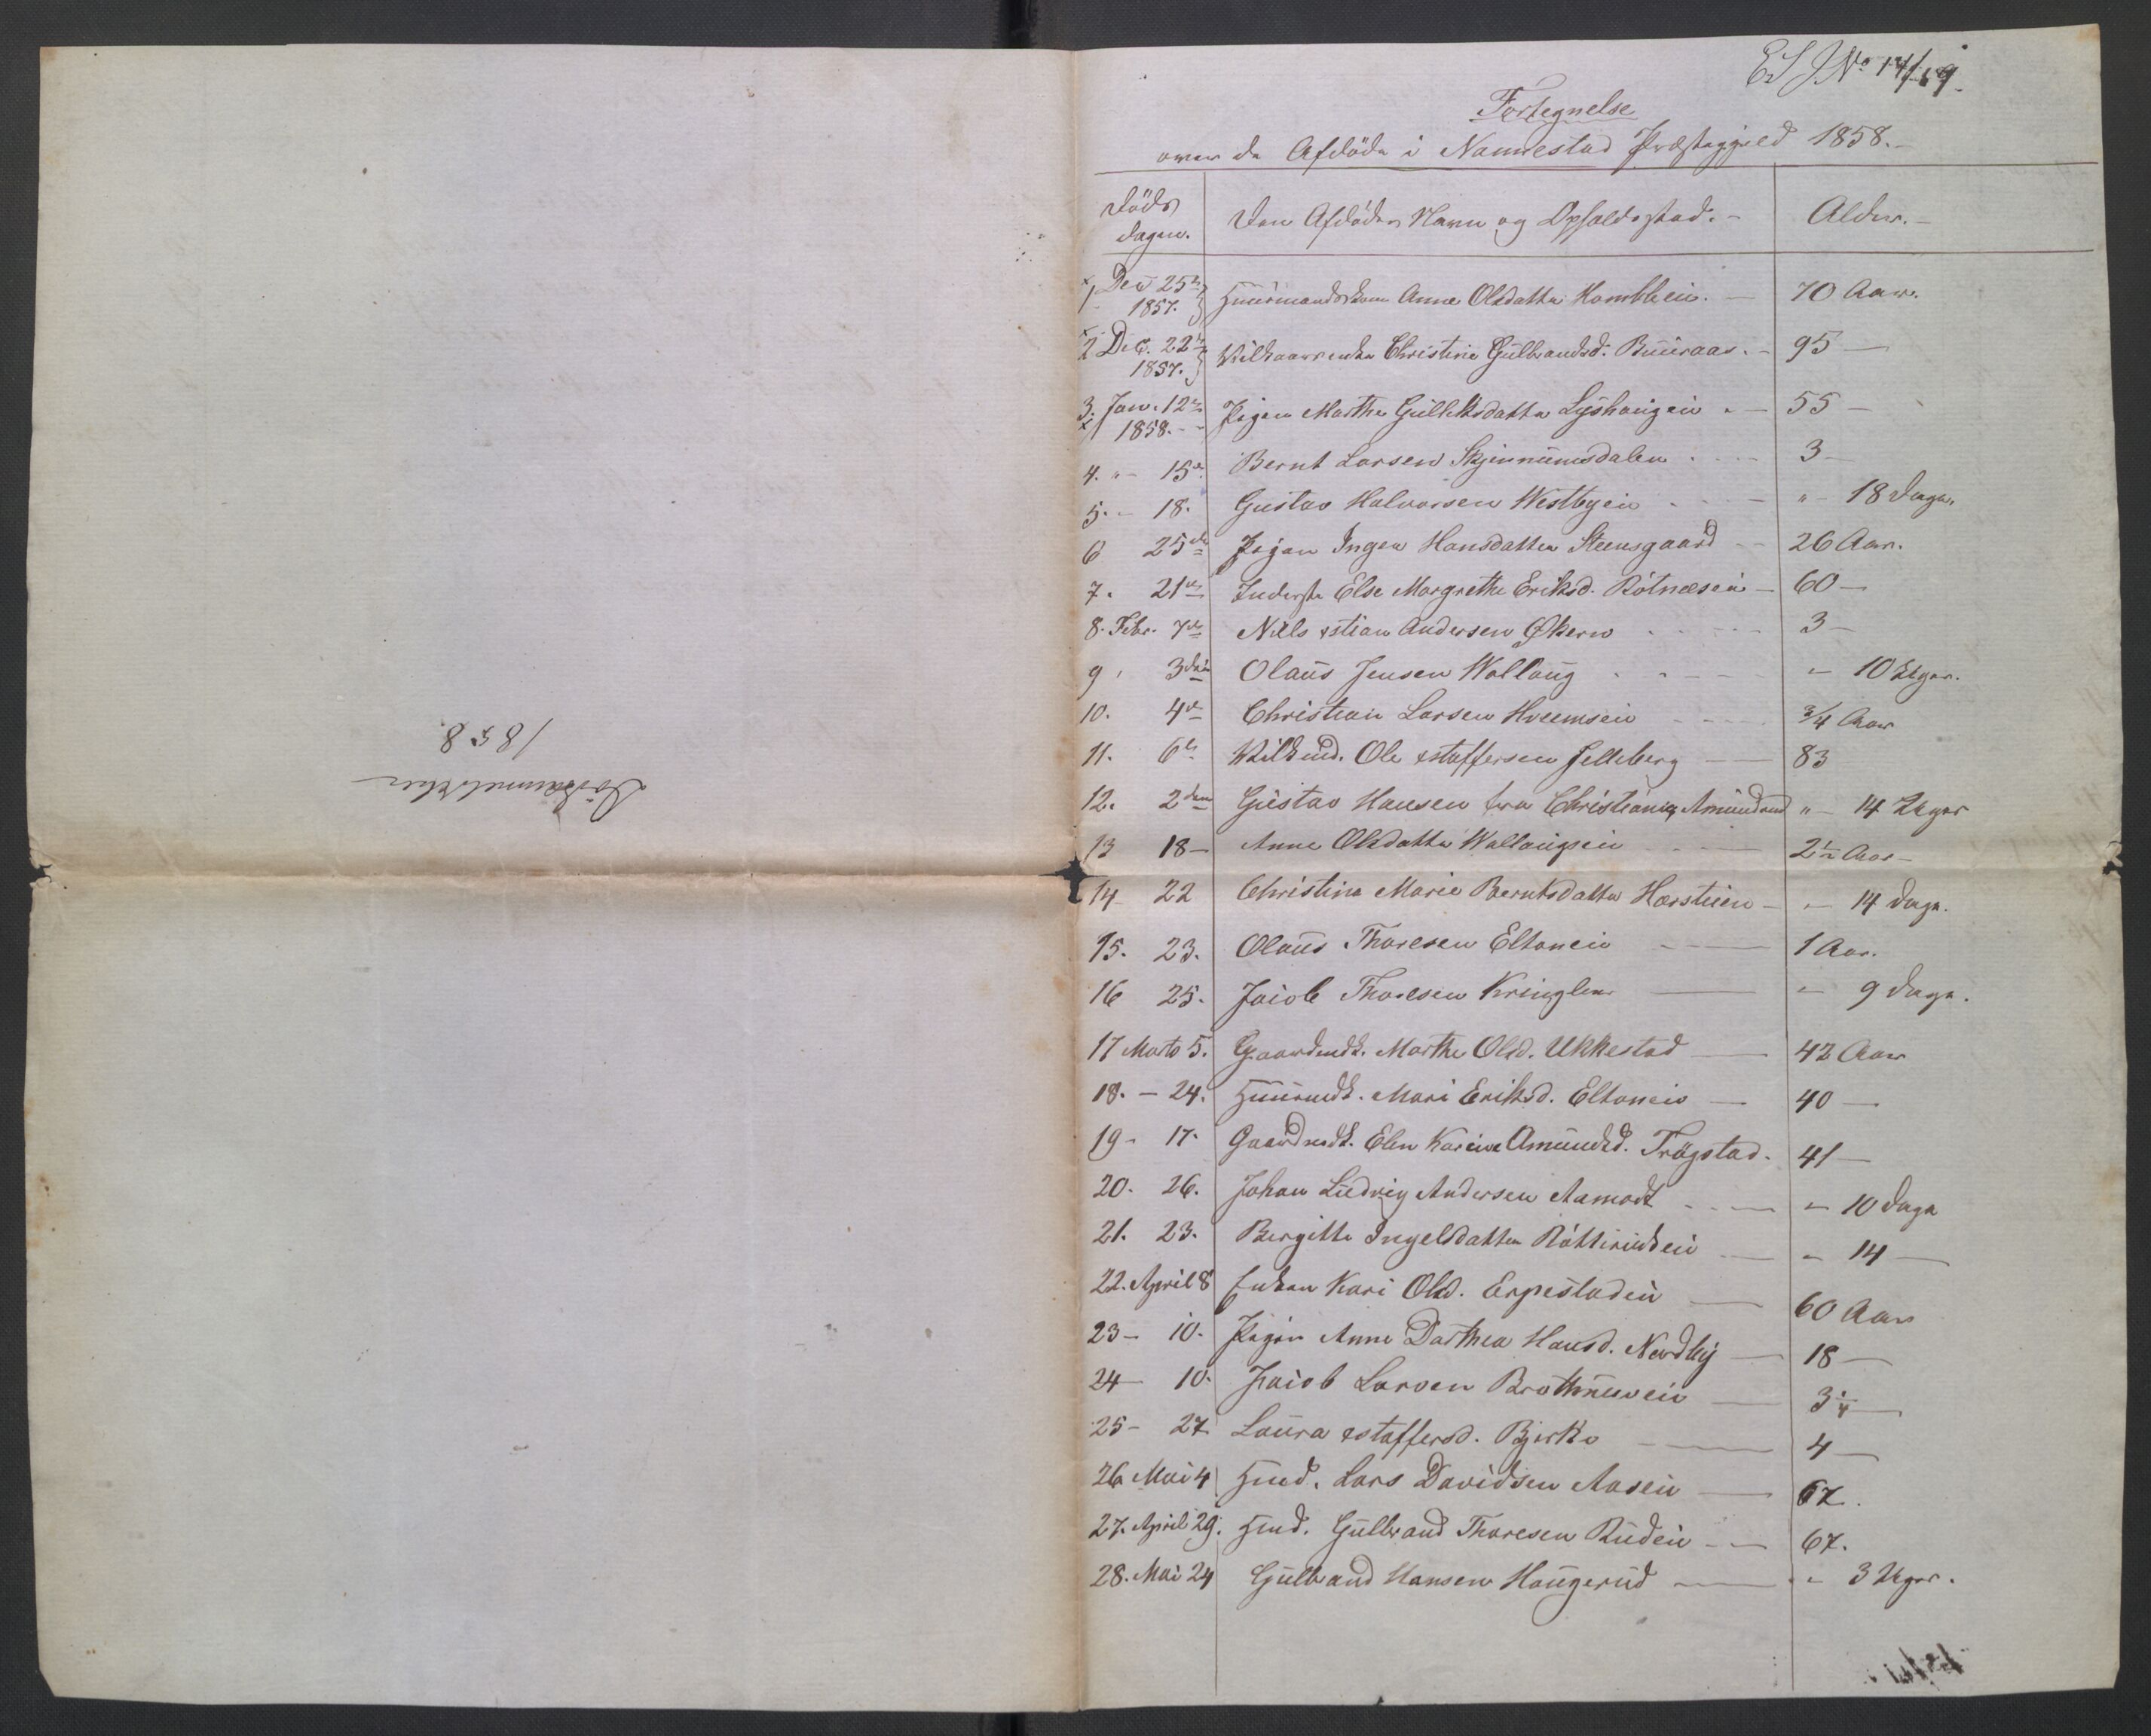 1858.
E S J.No 14/59.
Fortegnelse
over de Afdöde i Nannestad Præstegjeld 1858.
Döds
dagen.
Den Afdödes Navn og Opholdssted.
Alder.
1 Dec 25de 1857. Huusmandskone Anne Olsdatter Kambleie. 70 Aar.
2 Dec. 22de 1857. Vilkaarsenke Christine Gulbrandsd. Buuraas. 95 —
3. Jan. 12te 1858. Pigen Marthe Gulliksdatter Lyshaugen 55 —
4. " 15de Bernt Larsen Skjennumsdalen 3 —
5. - 18. Gustav Halvorsen Westbyeie " 18 Dage.
6 25de Pigen Inger Hansdatter Steensgaard 26 Aar.
7. 21de Inderste Else Margrethe Eriksd. Rötneseie 60 —
8. Febr. 7de Nils xstian Andersen Økern 3 —
9 3die Olaus Jensen Wallaug " 10 Uger.
10. 4de Christian Larsen Hveemseie 3/4 Aar
11. 6te Vilkmd. Ole xstoffersen Jelleberg 83
12. 2den Gustav Hansen fra Christiania, Amundrud " 14 Uger
13 18 — Anne Olsdatter Wallaugseie 2 1/2 Aar
14 22 Christine Marie Berntsdatter Harstueen " 14 Dage.
15. 23. Olaus Thoresen Eltoneie 1 Aar.
16 25. Jacob Thoresen Kringler " 9 Dage.
17 Marts 5. Gaardmdk. Marthe Olsd. Ukkestad 42 Aar
18. - 24. Huusmdk. Mari Eriksd. Eltoneie 40 —
19 - 17. Gaardmdk. Elen Karine Amundsd. Trögstad. 41 —
20. 26. Johan Ludvig Andersen Aamodt " 10 Dage
21. 23. Bergitte Ingelsdatter " 14 —
22. April 8 Enken Kari Olsd. Erpestadeie 60 Aar
23 - 10. Pigen Anne Dorthea Hansd. Nordby 18 —
24 - 10. Jacob Larsen 3 1/4 —
25 - 27 Laura xstoffersd. Bjerke 4 —
26 Mai 4 Hmd. Lars Davidsen Aaseie 67.
27. April 29. Hmd. Gulbrand Thoresen Rudeie 67.
28. Mai 24 Gulbrand Hansen Haugerud " 3 Uger.